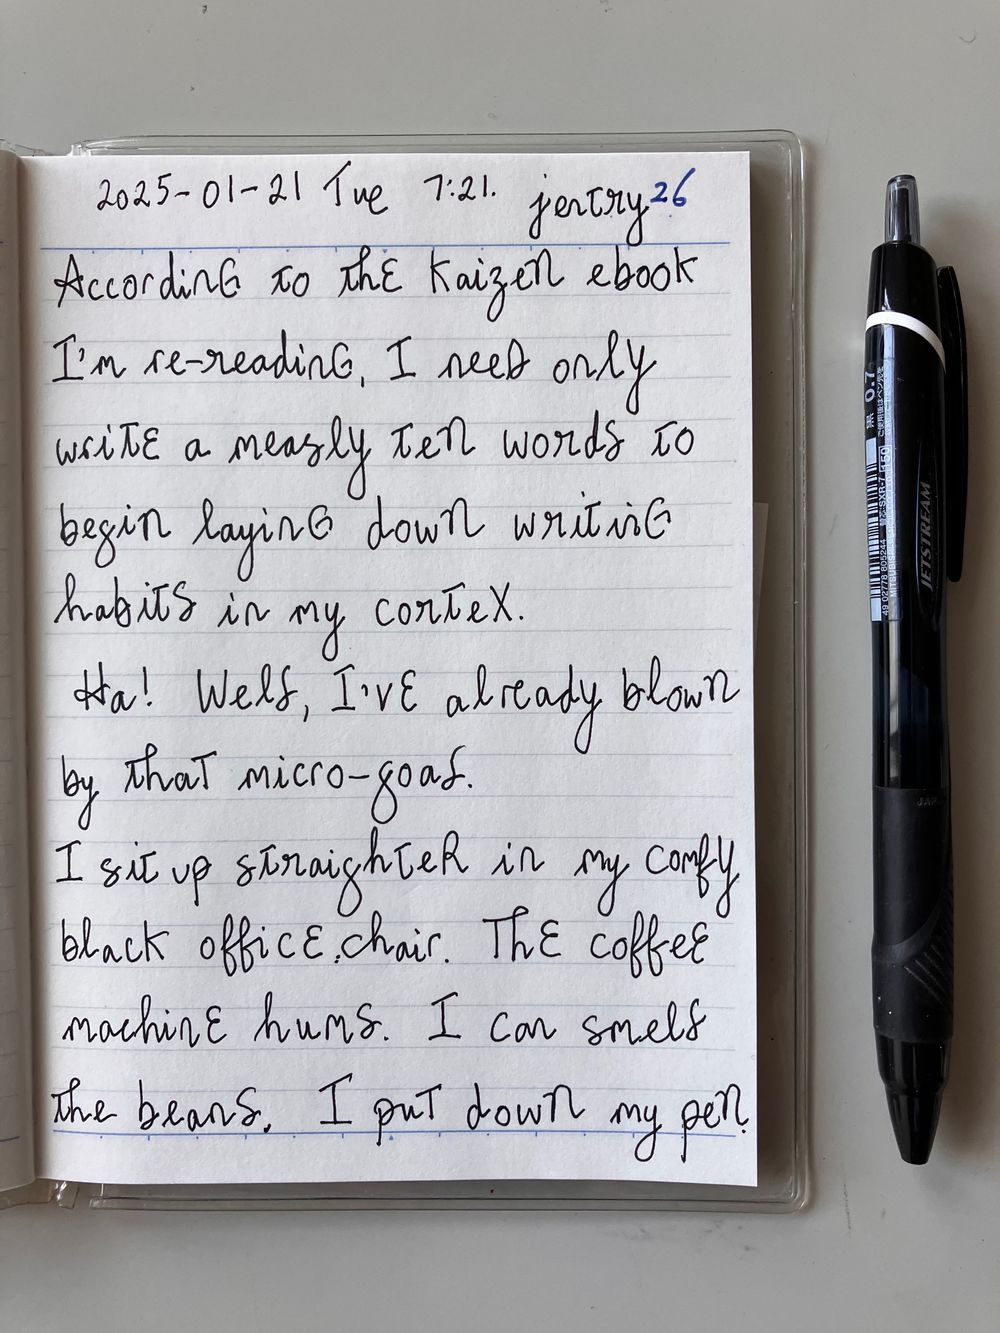 2025-01-21 Tue 7:21. jentry 26
According to the Kaizen ebook
I'm re-reading, I need only
write a measly ten words to
begin laying down writing
habits in my cortex.
Ha! Well, I've already blown
by that micro-goal.
I sit up straighter in my comfy
black office chair. The coffee
machine hums. I can smell
the beans. I put down my pen.
黒 0.7
ご使用後はペン先を
49 02778 805244
SXR-7 150
JETSTREAM